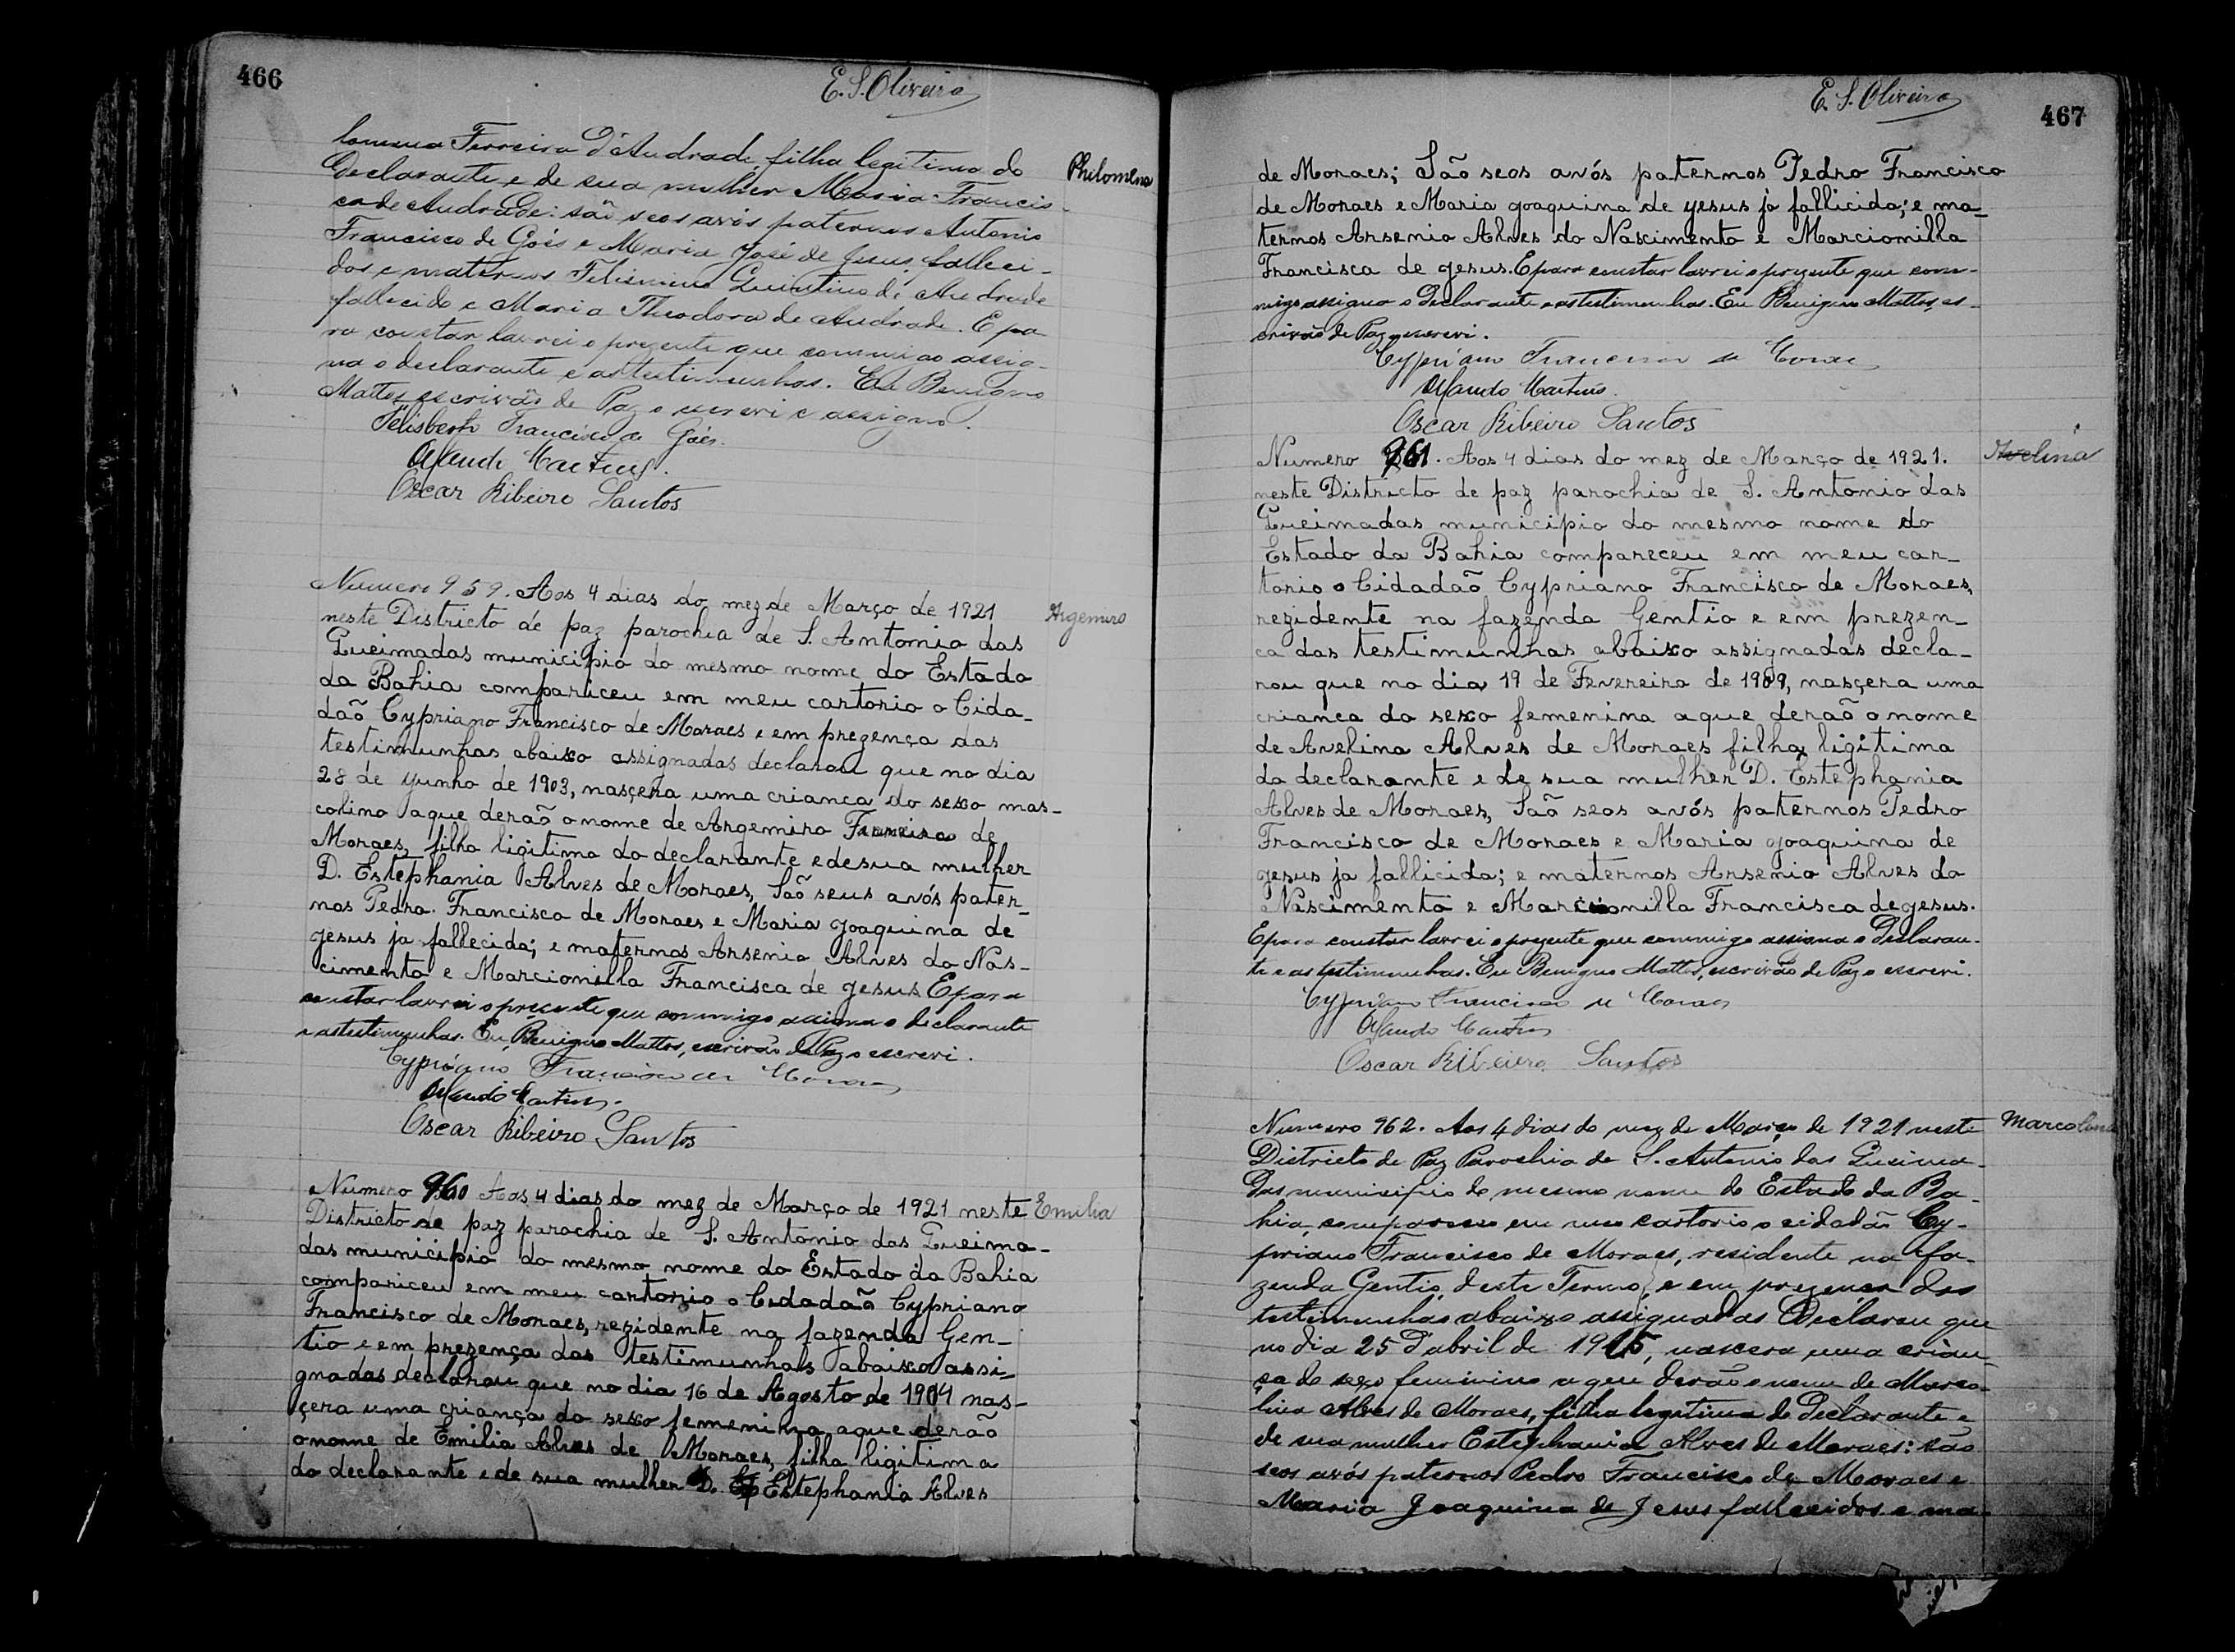 466
E. S. Oliveira
lomena Ferreira d'Andrade, filha legitima do
Philomena
Declarante e de sua mulher Maria Francis-
ca de Andrade: são seos avós paternos Antonio
Francisco de Goés e Maria José de Jesus, falleci-
dos e maternos Felismino Quintino de Andrade
fallecido e Maria Theodora de Andrade. E pa-
ra constar lavrei o prezente que commigo assig-
na o declarante e as testimunhas. Eu Benigno
Mattos, escrivão de Paz o escrevi e assigno.
Felisberto Francisco de Goés.
Martins.
Oscar Ribeiro Santos
Numero 959. Aos 4 dias do mez de Março de 1921
Argemiro
neste Districto de paz parochia de S. Antonio das
Queimadas municipio do mesmo nome do Estado
da Bahia compariceu em meu cartorio o Cida-
daõ Cypriano Francisco de Moraes e em prezença das
testimunhas abaixo assignadas declarou que no dia
28 de yunho de 1903, nasçera uma crianca do sexo mas-
colino aque derão o nome de Argemiro Ferreira de
Moraes, filho ligitimo do declarante e de sua mulher
D. Estephania Alves de Moraes, Saõ seus avós pater-
nos Pedro Francisco de Moraes e Maria yoaquina de
yesus ja fallecida; e maternos Arsenio Alves do Nas-
cimento e Marcionilla Francisca de yesus E para
constar lavrei o prezente que commigo assigna o declarante
e as testimunhas. Eu, Benigno Mattos, escrivão de Paz o escrevi.
Cypriano Francisco de Moraes
Martins.
Oscar Ribeiro Santos
Numero 960 Aos 4 dias do mez de Março de 1921 neste
Emilia
Districto de paz parochia de S. Antonio das Queima-
das municipio do mesmo nome do Estado da Bahia
compariceu em meu cartorio o Cidadaõ Cypriano
Francisco de Moraes, rezidente na fazenda Gen-
tio e em prezença das testimunhas abaixo assi-
gnadas declarou que no dia 16 de Agosto de 1904 nas-
çera uma criança do sexo femenino aque derão
o nome de Emilia Alves de Moraes, filha ligitima
do declarante e de sua mulher D. Estephania Alves
E. S. Oliveira
467
de Moraes; Saõ seos avós paternos Pedro Francisco
de Moraes e Maria yoaquina de yesus ja fallicida; e ma-
ternos Arsenio Alves do Nascimento e Marcionilla
Francisca de yesus. E para constar lavrei o prezente que com-
migo assigna o Declarante e as testimunhas. Eu Benigno Mattos, es-
crivão de Paz o escrevi.
Cypriano Francisco de Moraes
Martins.
Oscar Ribeiro Santos
Numero 961. Aos 4 dias do mez de Março de 1921.
Avelina
neste Districto de paz parochia de S. Antonio das
Queimadas municipio do mesmo nome do
Estado da Bahia compareceu em meu car-
torio o Cidadaõ Cypriano Francisco de Moraes,
rezidente na fazenda Gentio e em prezen-
ca das testimunhas abaixo assignadas decla-
rou que no dia 19 de Fevereiro de 1909, nasçera uma
crianca do sexo femenina aque derão o nome
de Avelina Alves de Moraes filha ligitima
do declarante e de sua mulher D. Estephania
Alves de Moraes, Saõ seos avós paternos Pedro
Francisco de Moraes e Maria yoaquina de
yesus ja fallicida; e maternos Arsenio Alves do
Nascimento e Marcionilla Francisca de yesus.
E para constar lavrei o prezente que commigo assigna o Declaran-
te e as testimunhas. Eu Benigno Mattos, escrivão de Paz o escrevi.
Cypriano Francisco de Moraes
Martins
Oscar Ribeiro Santos
Numero 962. Aos 4 dias do mez de Março de 1921 neste
Marcolina
Districto de Paz Parochia de S. Antonio das Queima-
das municipio do mesmo nome do Estado da Ba-
hia, compareceu em meu cartorio o cidadão Cy-
priano Francisco de Moraes, residente na fa-
zenda Gentio, deste Termo, e em prezença das
testimunhas abaixo assignadas Declarou que
no dia 25 d'abril de 1915, nascera uma crian-
ça do sexo feminino a que derão o nome de Marco-
lina Alves de Moraes, filha legitima do Declarante e
de sua mulher Estephania Alves de Moraes: são
seos avós paternos Pedro Francisco de Moraes e
Maria Joaquina de Jesus fallecidos e ma-